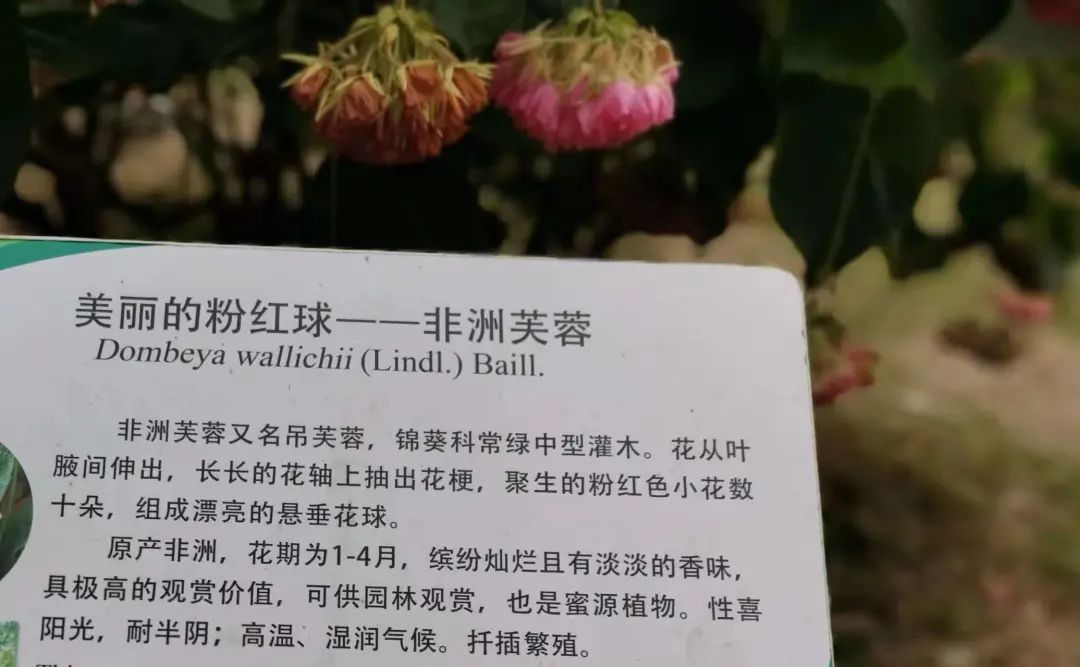 美丽的粉红球——非洲芙蓉
Dombeya wallichii (Lindl.) Baill.
非洲芙蓉又名吊芙蓉，锦葵科常绿中型灌木。花从叶
腋间伸出，长长的花轴上抽出花梗，聚生的粉红色小花数
十朵，组成漂亮的悬垂花球。
原产非洲，花期为1-4月，缤纷灿烂且有淡淡的香味，
具极高的观赏价值，可供园林观赏，也是蜜源植物。性喜
阳光，耐半阴；高温、湿润气候。扦插繁殖。